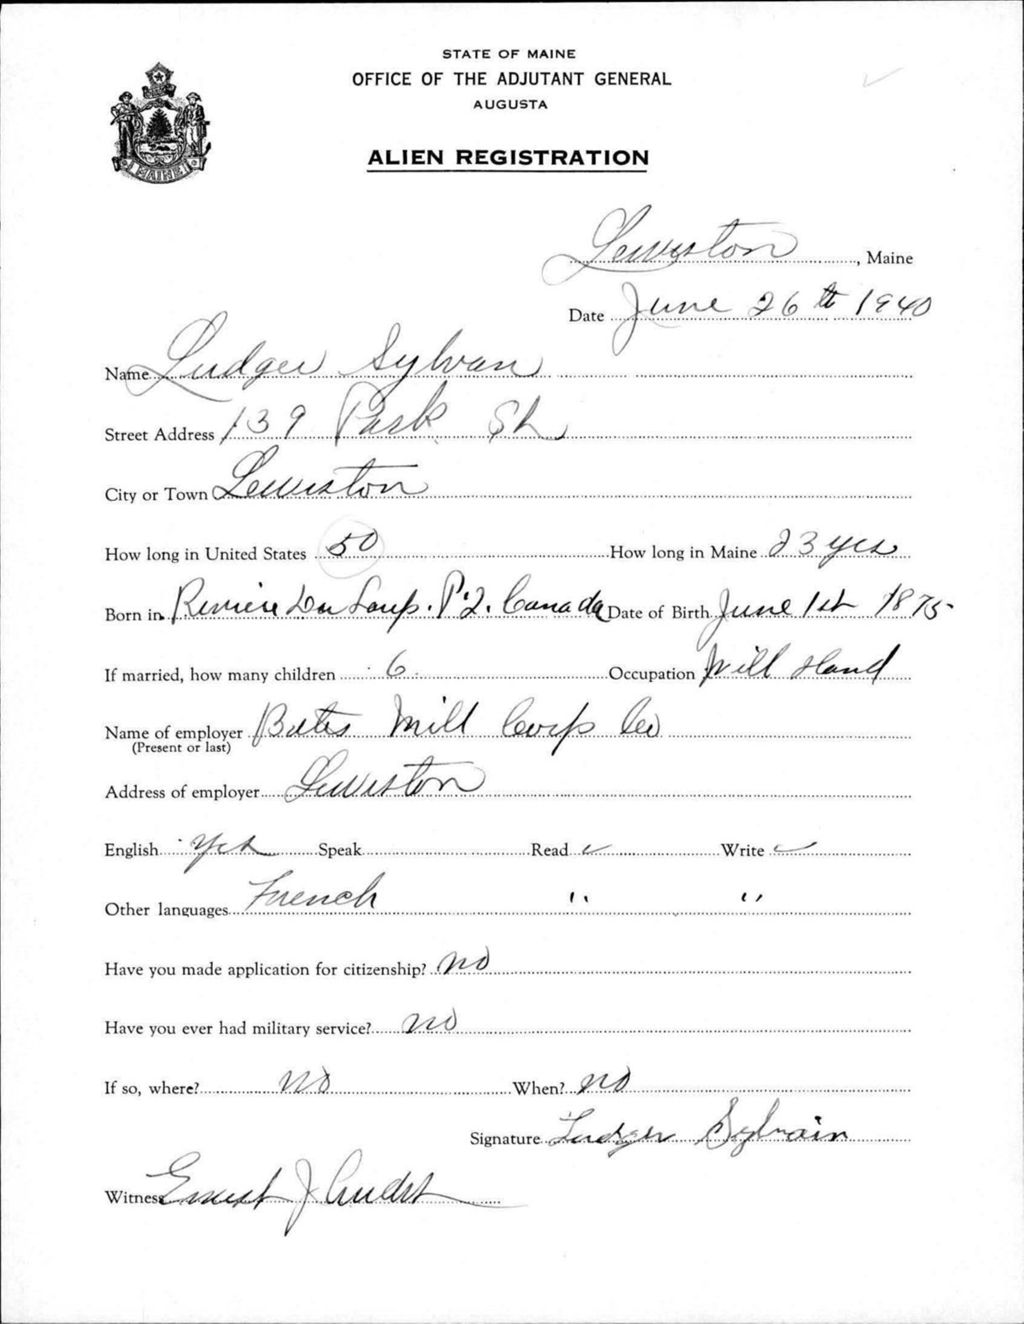 STATE OF MAINE
OFFICE OF THE ADJUTANT GENERAL
AUGUSTA
ALIEN REGISTRATION
MAINE
Lewiston, Maine
Date June 26th 1940
Name Ludger Sylvain
Street Address 139 Park St.
City or Town Lewiston
How long in United States 50 How long in Maine 23 yrs
Born in Riviere Du Loup. P.Q. Canada Date of Birth June 1st 1875
If married, how many children 6 Occupation Mill Hand
Name of employer Bates Mill Corp Co
(Present or last)
Address of employer Lewiston
English Yes Speak Read ✓ Write ✓
Other languages French " "
Have you made application for citizenship? no
Have you ever had military service? no
If so, where? no When? no
Signature Ludger Sylvain
Witness Ernest J Audet